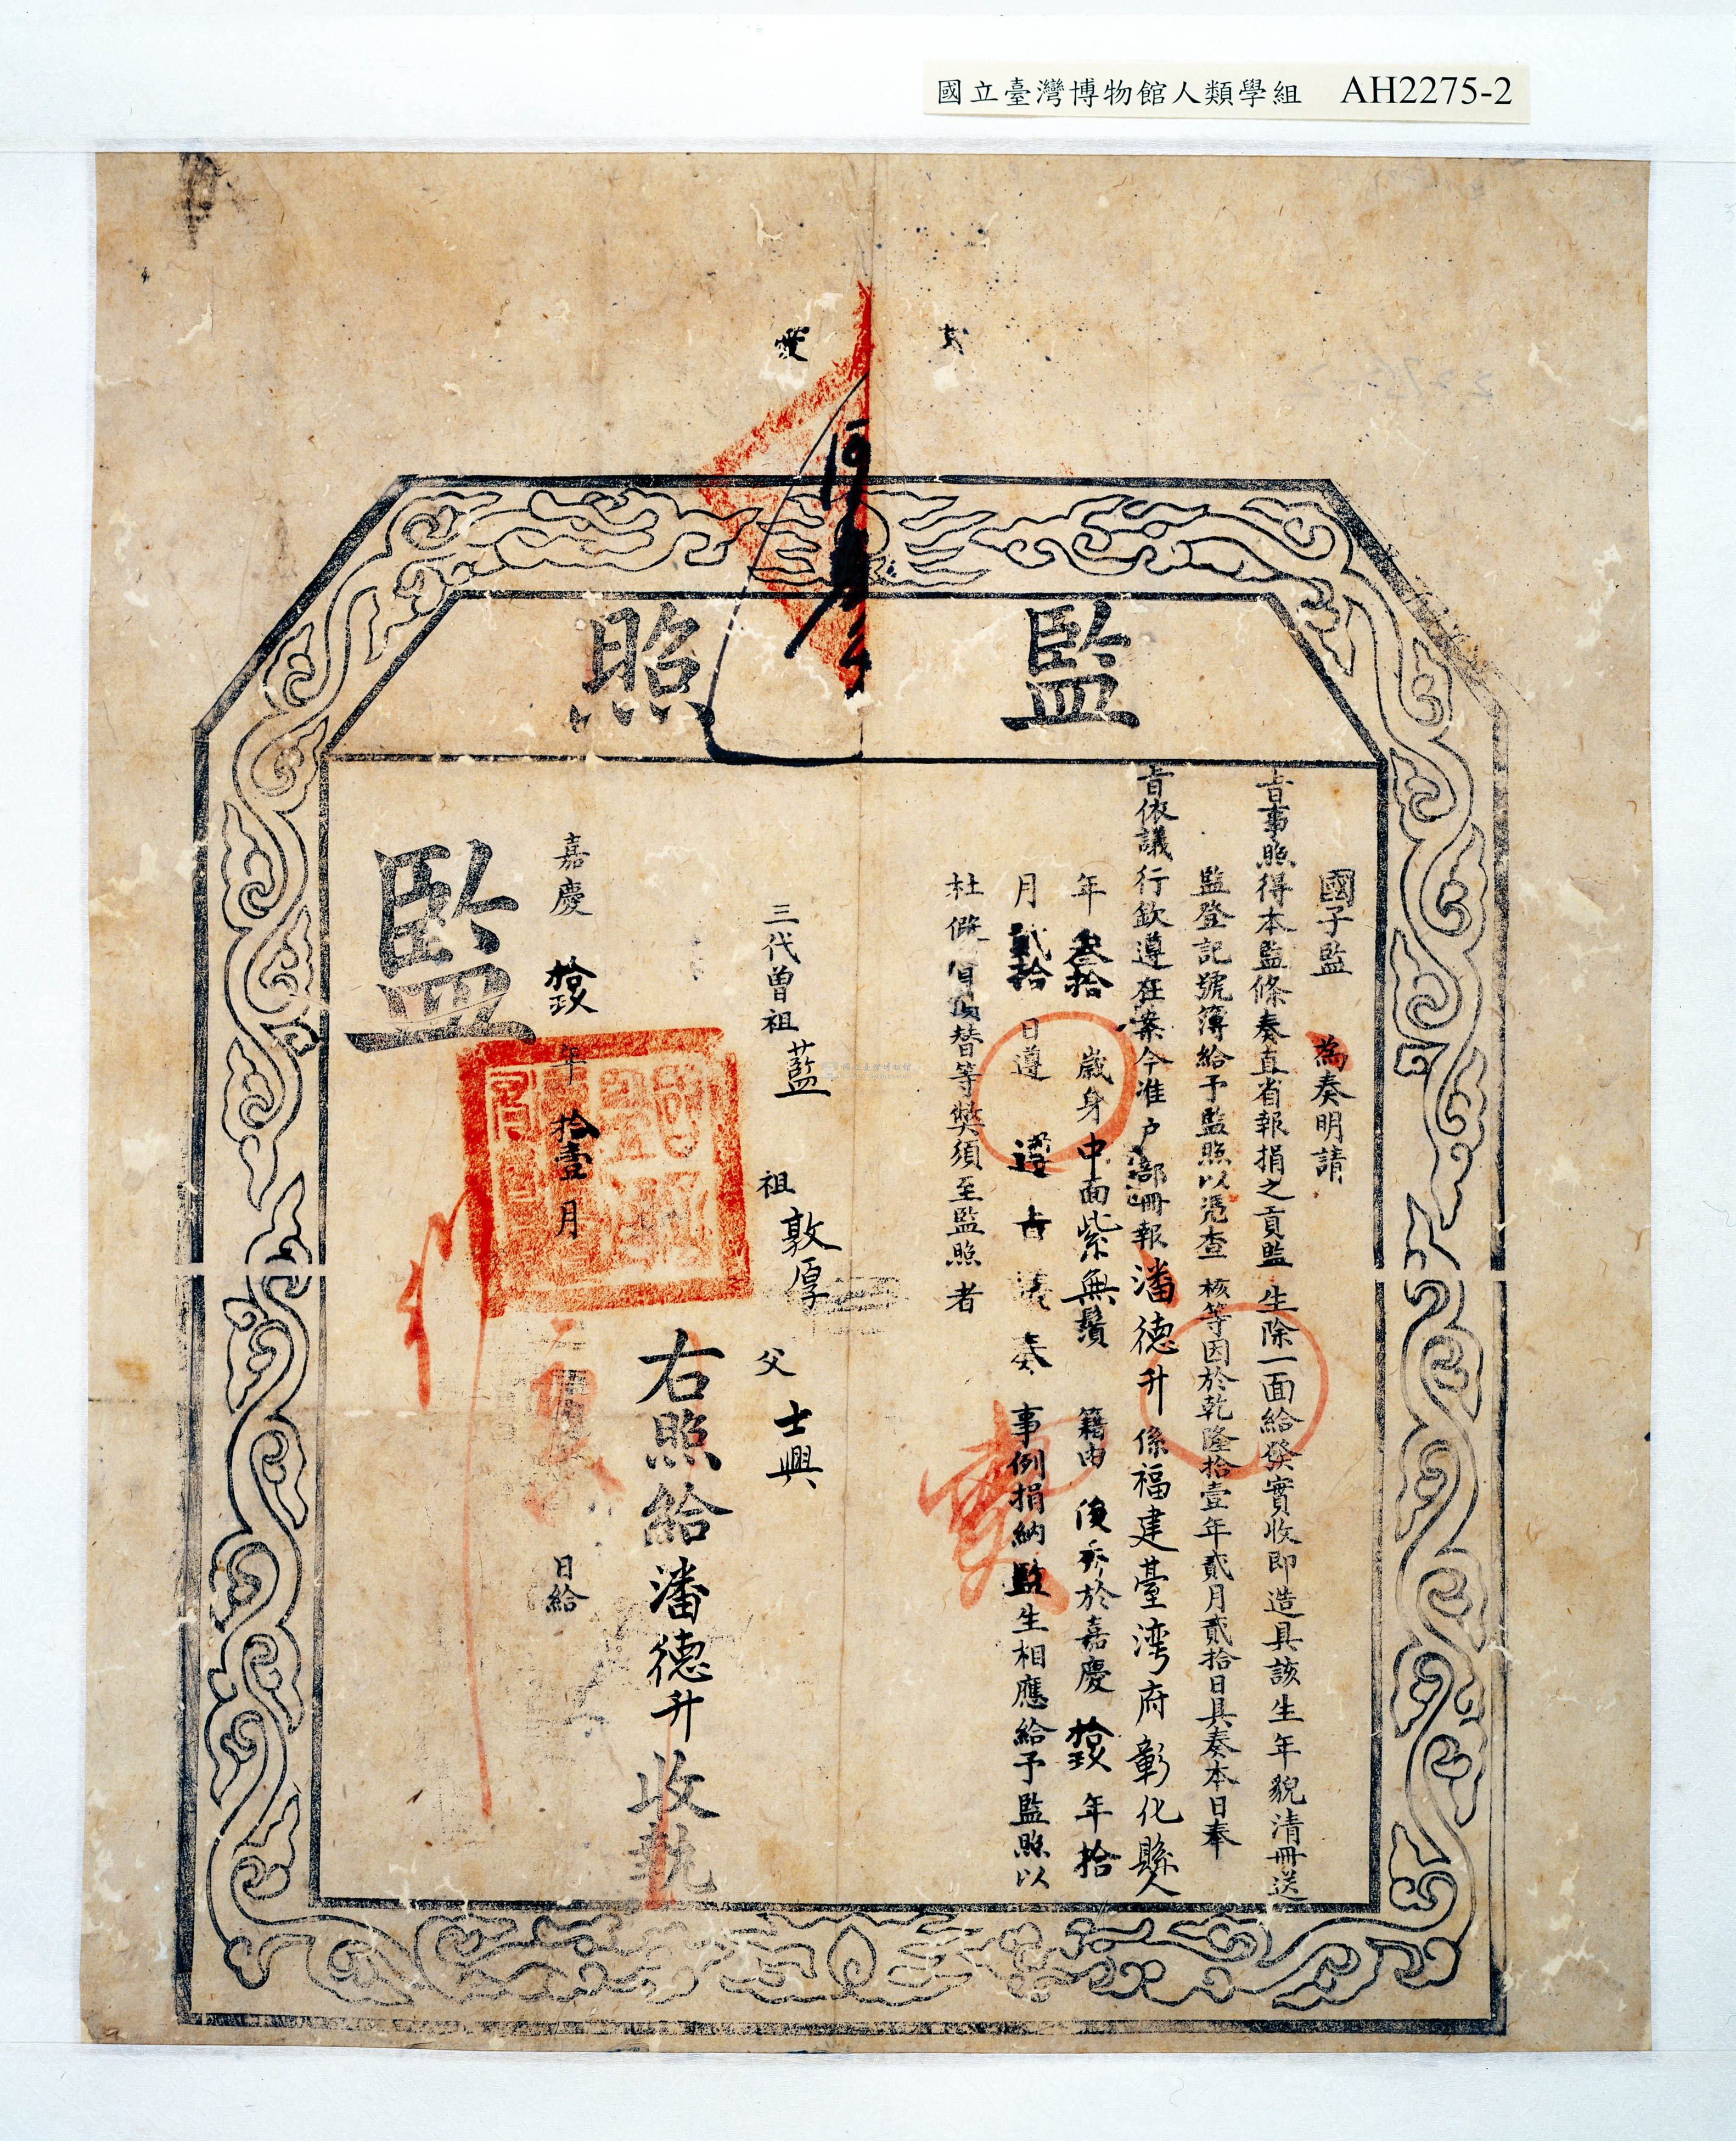 國立臺灣博物館人類學組 AH2275-2
監照
國子監 為奏明請
旨事照得本監條奏直省報捐之貢監生除一面給發實收即造具該生年貌清冊送
監登記號簿給予監照以憑查核等因於乾隆拾壹年貳月貳拾日具奏本日奉
旨依議行欽遵在案今准戶部冊報潘德升係福建臺湾府彰化縣人
年叁拾歲身中面紫無鬚籍由俊秀於嘉慶拾玖年拾
月貳拾日遵 奏事例捐納監生相應給予監照以
杜假冒頂替等獘須至監照者
三代曾祖藍 祖敦厚 父士興
右照給潘德升收執
嘉慶拾玖年拾壹月 日給
監